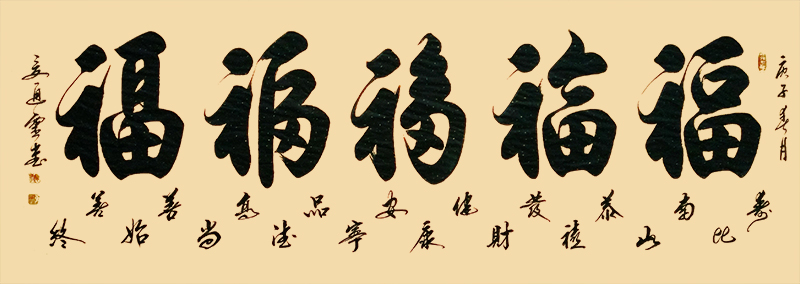 庚子春月
福福福福福
寿比南山恭禧發財健康安寧品德高尚善始善終
通雲書